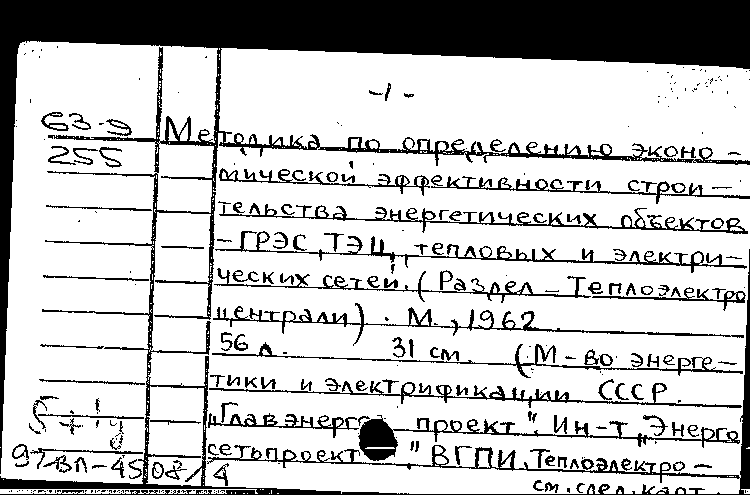 -1-
63-9
255
Методика по определению эконо-
мической эффективности строи-
тельства энергетических объектов
-ГРЭС, ТЭЦ, тепловых и электри-
ческих сетей. (Раздел - Теплоэлектро
централи). М., 1962.
56 л. 31 см. (М-во энерге-
тики и электрификации СССР.
"Главэнерго проект". Ин-т "Энерго
сетьпроект" ВГПИ, Теплоэлектро-
97-ВЛ-4508/4
см. след. карт.